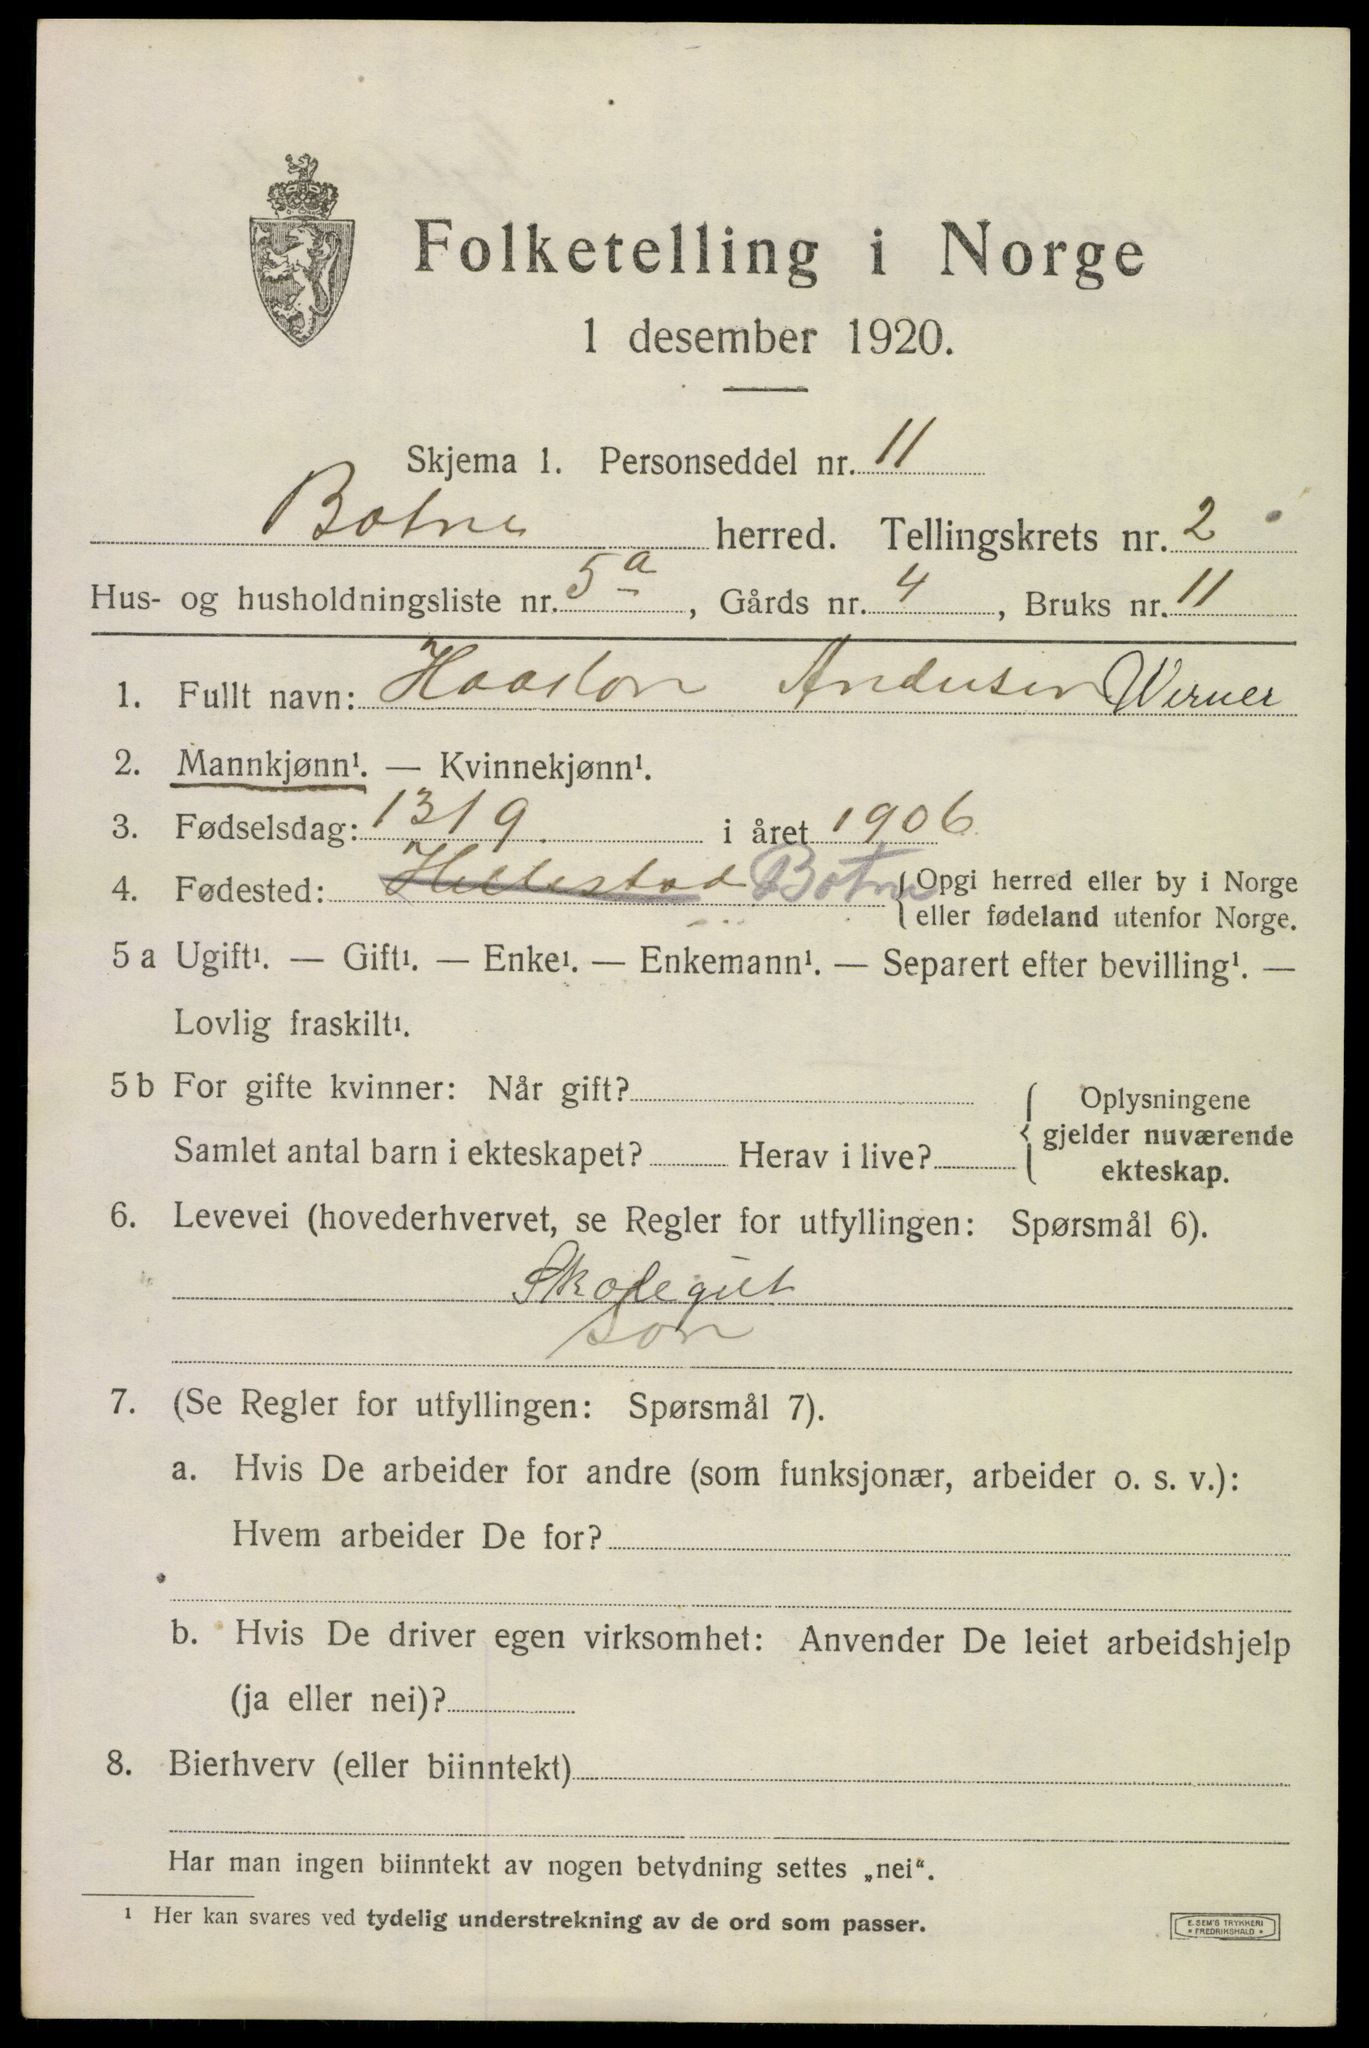 Folketelling i Norge
1 desember 1920.
Skjema 1. Personseddel nr. 11
Botne herred. Tellingskrets nr. 2
Hus- og husholdningsliste nr. 5a, Gårds nr. 4, Bruks nr. 11
1. Fullt navn: Haakon Andersen Werner
2. Mannkjønn¹. — Kvinnekjønn¹.
3. Fødselsdag: 13/9 i året 1906
4. Fødested: Hillestad Botne {Opgi herred eller by i Norge
eller fødeland utenfor Norge.
5 a Ugift¹. — Gift¹. — Enke¹. — Enkemann¹. — Separert efter bevilling¹. —
Lovlig fraskilt¹.
5 b For gifte kvinner: Når gift?
Samlet antal barn i ekteskapet? Herav i live?
{ Oplysningene
gjelder nuværende
ekteskap.
6. Levevei (hovederhvervet, se Regler for utfyllingen: Spørsmål 6).
Skolegut
Søn
7. (Se Regler for utfyllingen: Spørsmål 7).
a. Hvis De arbeider for andre (som funksjonær, arbeider o. s. v.):
Hvem arbeider De for?
b. Hvis De driver egen virksomhet: Anvender De leiet arbeidshjelp
(ja eller nei)?
8. Bierhverv (eller biinntekt)
Har man ingen biinntekt av nogen betydning settes „nei“.
¹ Her kan svares ved tydelig understrekning av de ord som passer.
E. SEM'S TRYKKERI
* FREDRIKSHALD *